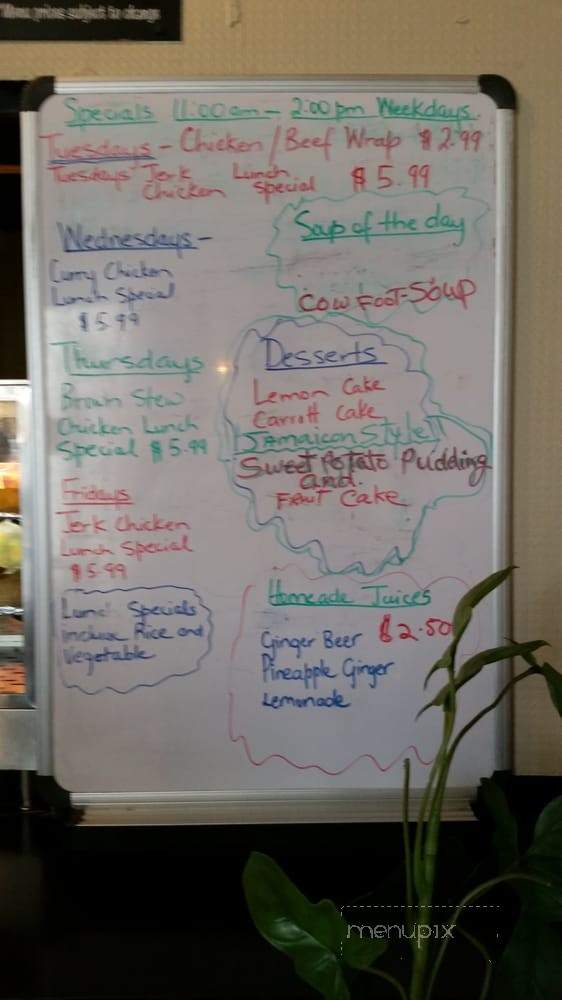 Menu prices subject to change
Specials 11:00am - 2:00pm Weekdays.
Tuesdays - Chicken/Beef Wrap $2.99
Tuesdays' Jerk Lunch
Chicken Special $5.99
Wednesdays -
Curry Chicken
Lunch Special
$5.99
Soup of the day
COW FOOT-SOUP
Thursdays
Brown Stew
Chicken Lunch
Special $5.99
Desserts
Lemon Cake
Carrott Cake
JAmaican Style
Sweet Potato Pudding
and.
FRuiT Cake
Fridays
Jerk Chicken
Lunch Special
$5.99
Specials
Include Rice and
Vegetable
Homeade Juices
$2.50
Ginger Beer
Pineapple Ginger
Lemonade
menupix